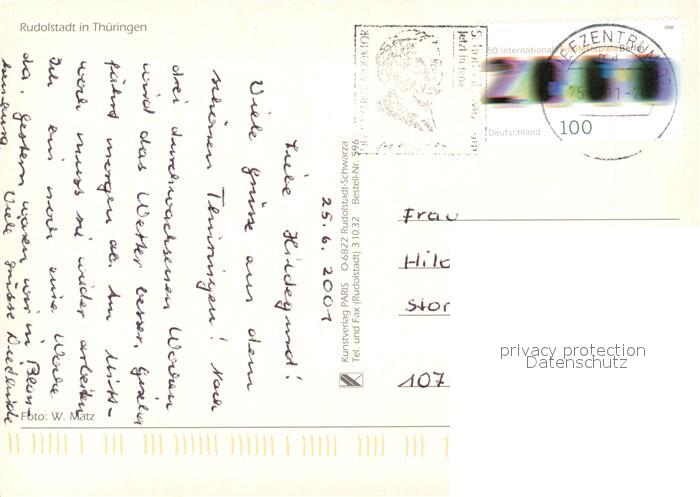 Rudolstadt in Thüringen
25.6.2001
Liebe Hildegund!
Viele Grüße aus dem
schönen Thüringen! Nach
drei durchwachsenen Wochen
wird das Wetter besser. Gisela
fährt morgen ab. Am Mitt-
woch muss sie wieder arbeiten
Ich bin noch eine Woche
da. Gestern waren wir in Blan-
Viele Grüsse
Foto: W. Matz
Kunstverlag PARIS O-6822 Rudolstadt-Schwarza
Tel. und Fax (Rudolstadt) 3 10 32 Bestell-Nr. 596
50. Internationale Filmfestspiele Berlin
2000
Deutschland
100
BRIEFZENTRUM
Frau
Hild
Stor
107
privacy protection
Datenschutz